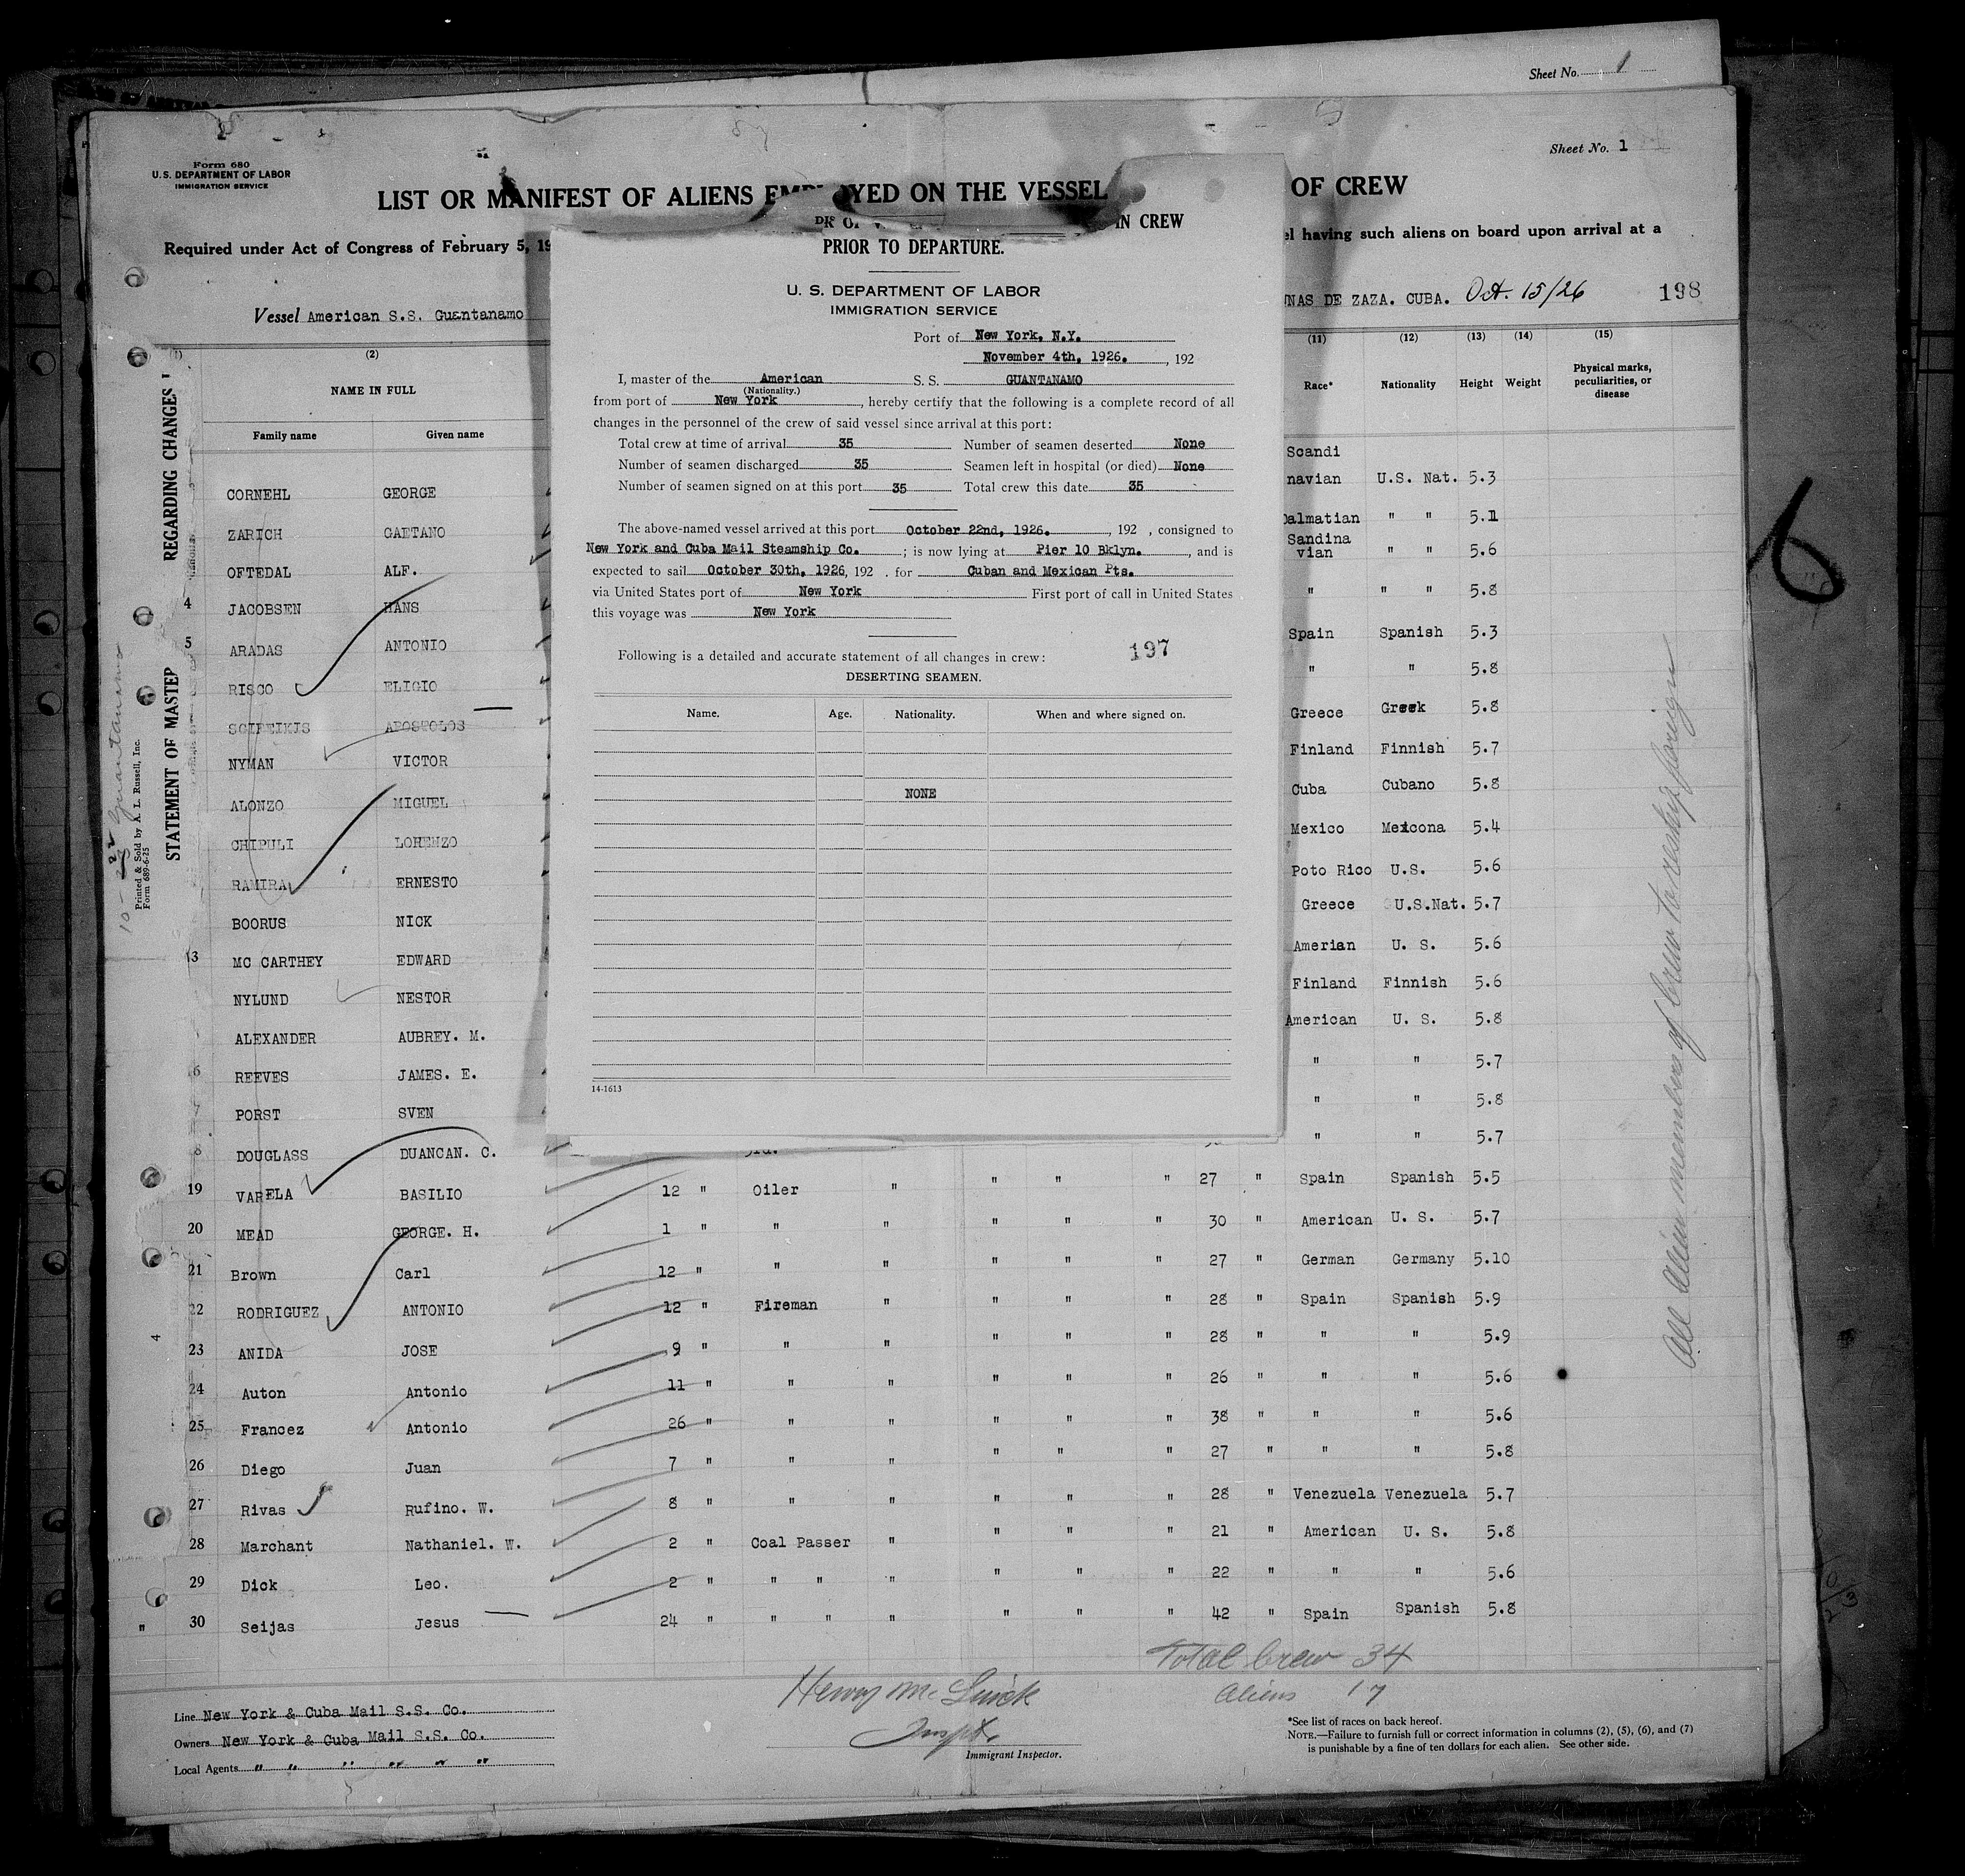 Sheet No. 1
Sheet No. 1
Form 680
U.S. DEPARTMENT OF LABOR
IMMIGRATION SERVICE
LIST OR MANIFEST OF ALIENS EMPLOYED ON THE VESSEL OF CREW
Required under Act of Congress of February 5, 19 el having such aliens on board upon arrival at a
Vessel American S.S. Guantanamo
UNAS DE ZAZA. CUBA. Oct. 15/26 198
IN CREW
PRIOR TO DEPARTURE.
U. S. DEPARTMENT OF LABOR
IMMIGRATION SERVICE
Port of New York, N.Y.
November 4th, 1926. , 192
I, master of the American S. S. GUANTANAMO
(Nationality.)
from port of New York , hereby certify that the following is a complete record of all
changes in the personnel of the crew of said vessel since arrival at this port:
Total crew at time of arrival 35 Number of seamen deserted None
Number of seamen discharged 35 Seamen left in hospital (or died) None
Number of seamen signed on at this port 35 Total crew this date 35
The above-named vessel arrived at this port October 22nd, 1926. , 192 , consigned to
New York and Cuba Mail Steamship Co. ; is now lying at Pier 10 Bklyn. , and is
expected to sail October 30th, 1926, 192 . for Cuban and Mexican Pts.
via United States port of New York First port of call in United States
this voyage was New York
Following is a detailed and accurate statement of all changes in crew: 197
DESERTING SEAMEN.
Name. Age. Nationality. When and where signed on.
NONE
14-1613
STATEMENT OF MASTER REGARDING CHANGES I
Printed & Sold by A. L. Russell, Inc.
Form 689-6-25
Guantanamo
(1) (2) (11) (12) (13) (14) (15)
NAME IN FULL Race* Nationality Height Weight Physical marks, peculiarities, or disease
Family name Given name
Scandi
CORNEHL GEORGE navian U.S. Nat. 5.3
ZARICH GAETANO Dalmatian " " 5.1
OFTEDAL ALF. Sandina vian " " 5.6
4 JACOBSEN HANS " " " 5.8
5 ARADAS ANTONIO Spain Spanish 5.3
RISCO ELIGIO " " 5.8
APOSTOLOS Greece Greek 5.8
NYMAN VICTOR Finland Finnish 5.7
ALONZO MIGUEL Cuba Cubano 5.8
CHIPULI LORENZO Mexico Mexicona 5.4
RAMIRA ERNESTO Poto Rico U.S. 5.6
BOORUS NICK Greece U.S.Nat. 5.7
13 MC CARTHEY EDWARD Amerian U. S. 5.6
NYLUND NESTOR Finland Finnish 5.6
ALEXANDER AUBREY. M. American U. S. 5.8
6 REEVES JAMES. E. " " 5.7
7 PORST SVEN " " 5.8
8 DOUGLASS DUANCAN. C. 3rd. " " 5.7
19 VARELA BASILIO 12 " Oiler " " " " 27 " Spain Spanish 5.5
20 MEAD GEORGE. H. 1 " " " " " " 30 " American U. S. 5.7
21 Brown Carl 12 " " " " " " 27 " German Germany 5.10
22 RODRIGUEZ ANTONIO 12 " Fireman " " " " 28 " Spain Spanish 5.9
23 ANIDA JOSE 9 " " " " " " 28 " " " 5.9
24 Auton Antonio 11 " " " " " " 26 " " " 5.6
25 Francez Antonio 26 " " " " " " 38 " " " 5.6
26 Diego Juan 7 " " " " " " 27 " " " 5.8
27 Rivas Rufino. W. 8 " " " " " " 28 " Venezuela Venezuela 5.7
28 Marchant Nathaniel. W. 2 " Coal Passer " " " " 21 " American U. S. 5.8
29 Dick Leo. 2 " " " " " " " 22 " " " 5.6
" 30 Seijas Jesus 24 " " " " " " " 42 " Spain Spanish 5.8
All Alien members of Crew to reship foreign
6
4
Total Crew 34
Aliens 17
Henry
Inspt.
Immigrant Inspector.
Line New York & Cuba Mail S.S. Co.
Owners New York & Cuba Mail S.S. Co.
Local Agents " " " " " "
*See list of races on back hereof.
NOTE.—Failure to furnish full or correct information in columns (2), (5), (6), and (7)
is punishable by a fine of ten dollars for each alien. See other side.